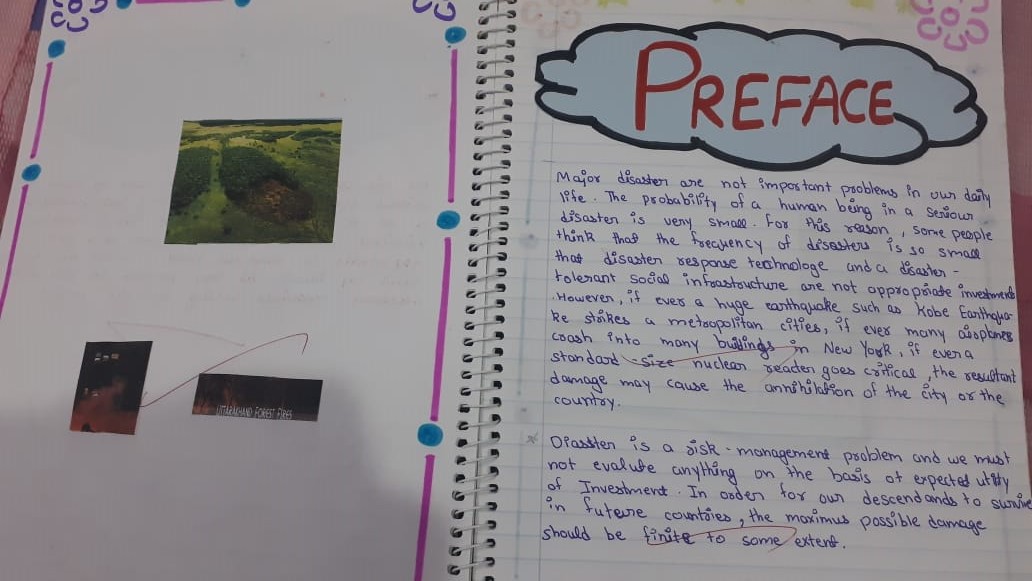 UTTARAKHAND FOREST FIRES
PREFACE
Major disaster are not important problems in our daily
life. The probability of a human being in a seriour
disaster is very small. For this reason, some people
think that the frequency of disasters is so small
that disaster response technologe and a disaster-
tolerant social infrastructure are not appropriate investment
However, if ever a huge earthquake such as Kobe Earthqua-
ke strikes a metropolitan cities, if ever many airplanes
crash into many buildings in New York, if ever a
standard-size nuclear reader goes critical, the resultant
damage may cause the annihilation of the city or the
country.
Diasster is a risk-management problem and we must
not evalute anything on the basis of expected utility
of Investment. In order for our descendands to survive
in future countries, the maximus possible damage
should be finite to some extent.